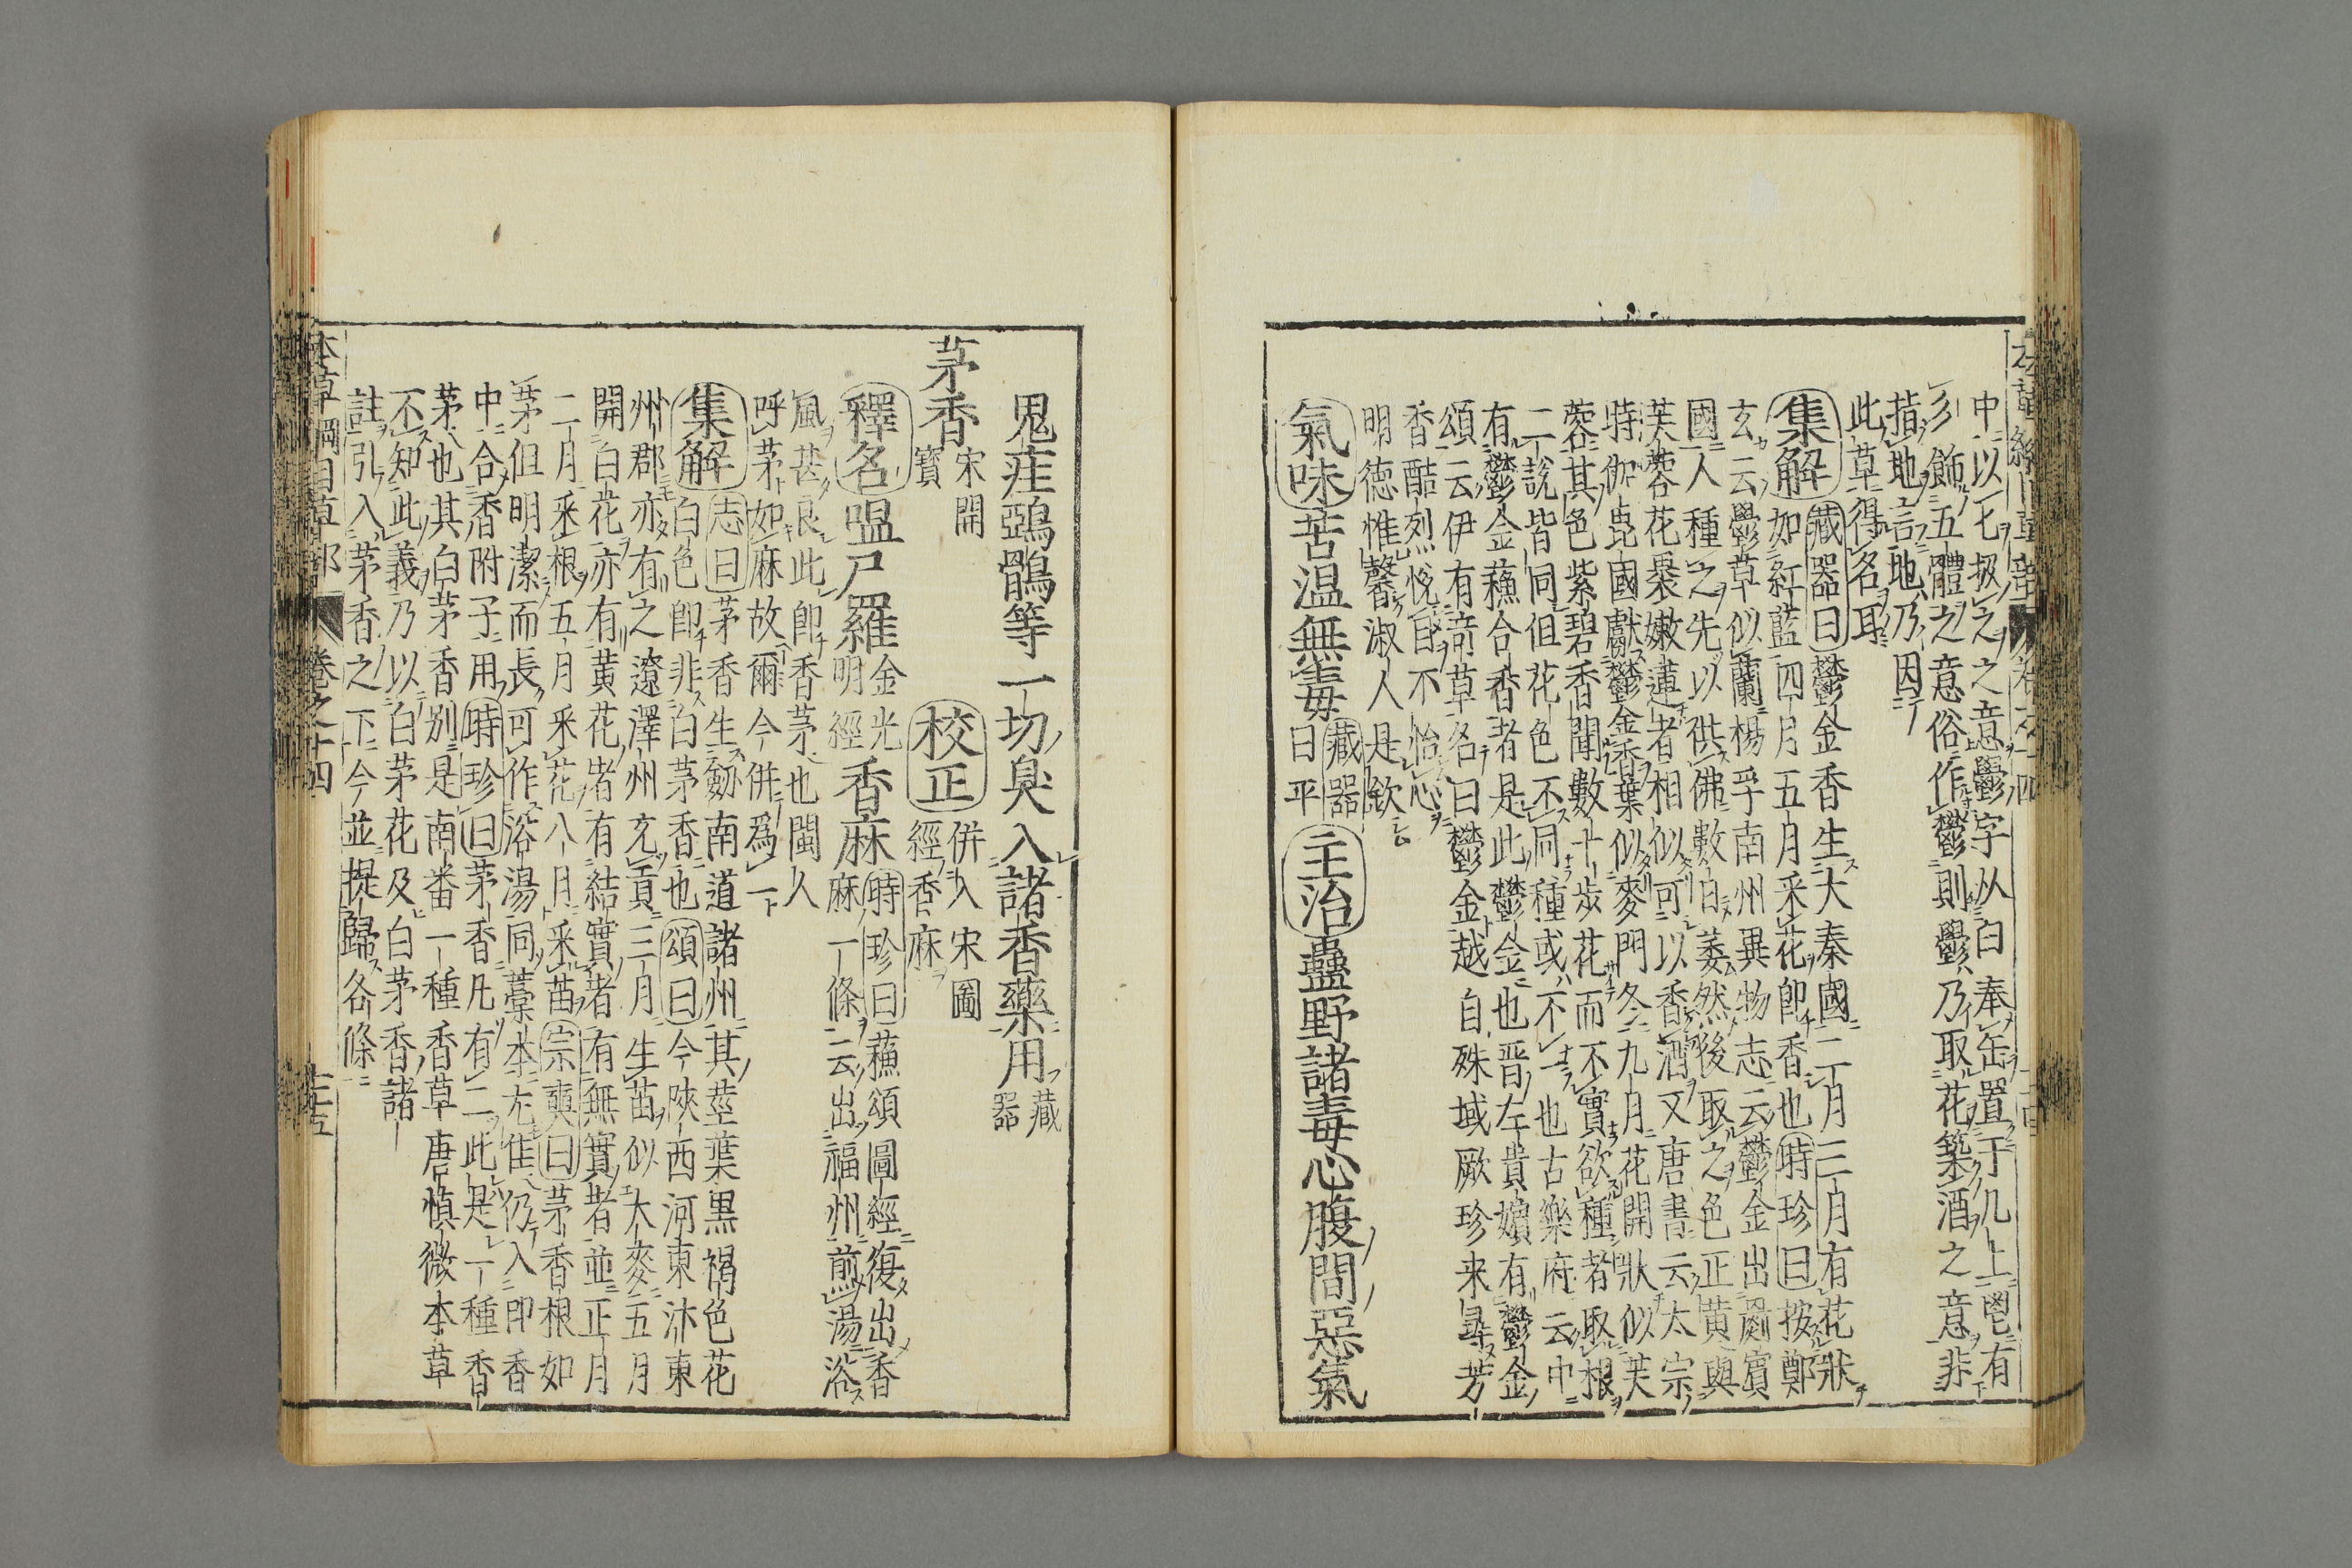 中以匕扱之之意鬱字从臼奉缶置于几上鬯有
彡飾五體之意俗作鬱則鬱乃取花築酒之意非
指地言地乃因
此草得名耳
集解藏器曰鬱金香生大秦國二月三月有花狀
如紅藍四月五月采花卽香也時珍曰按鄭
玄云鬱草似蘭楊孚南州異物志云鬱金出罽賓
國人種之先以供佛數日萎然後取之色正黄與
芙蓉花裹嫩蓮者相似可以香酒又唐書云太宗
時伽毘國獻鬱金香葉似麥門冬九月花開狀似芙
蓉其色紫碧香聞數十步花而不實欲種者取根
二說皆同但花色不同種或不一也古樂府云中
有鬱金蘇合香者是此鬱金也晋左貴嬪有鬱金
頌云伊有竒草名曰鬱金越自殊域厥珍来尋芳
香酷烈悅目不怡心
明德惟馨淑人是欽
氣味苦温無毒藏器曰平主治蠱野諸毒心腹間惡氣
本草綱目草部 卷之十四
鬼疰鵶鶻等一切臭入諸香藥用藏器
茅香宋開寶 校正併入宋圖經香麻
釋名嗢尸羅金光明經香麻時珍曰蘇頌圖經復出香
麻一條云出福州煎湯浴
風甚良此卽香茅也閩人
呼茅如麻故爾今併爲一
集解志曰茅香生劒南道諸州其莖葉黒褐色花
白色卽非白茅香也頌曰今陝西河東汴東
州郡亦有之遼澤州充貢三月生苗似大麥五月
開白花亦有黄花者有結實者有無實者並正月
二月采根五月采花八月采苗宗奭曰茅香根如
茅但明潔而長可作浴湯同藁本尤佳仍入印香
中合香附子用時珍曰茅香凡有二此是一種香
茅也其白茅香别是南番一種香草唐慎微本草
不知此義乃以白茅花及白茅香諸
註引入茅香之下今並提歸各條
本草綱目草部 卷之十四